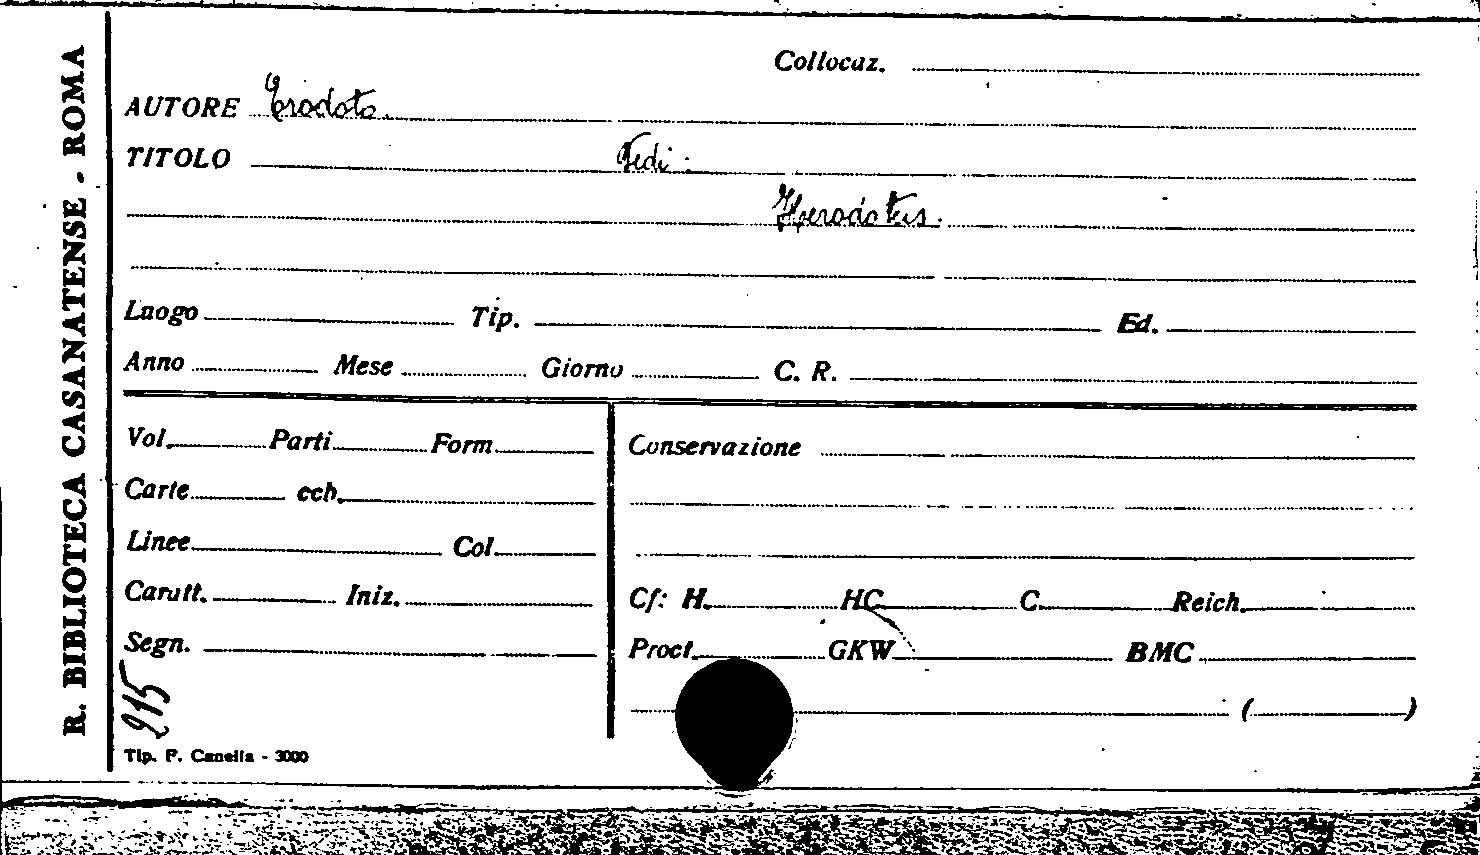 R. BIBLIOTECA CASANATENSE - ROMA
Collocaz.
AUTORE Erodoto.
TITOLO Vedi:
Herodotus.
Luogo Tip. Ed.
Anno Mese Giorno C. R.
Vol. Parti Form.
Carte cch.
Linee Col.
Caratt. Iniz.
Segn.
Conservazione
Cf: H. HC C. Reich.
Proct. GKW BMC
( )
215
Tip. F. Canella - 3000